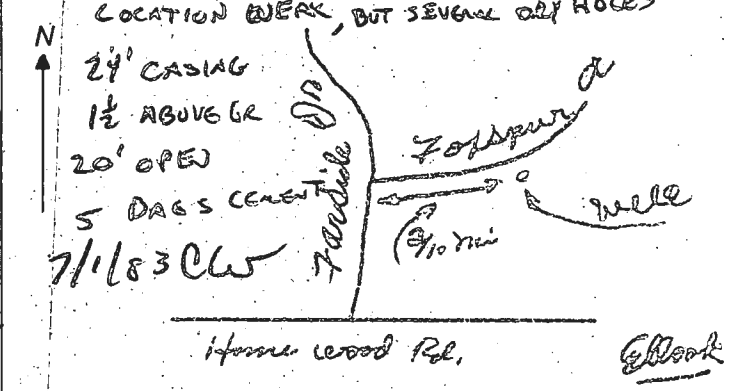 LOCATION , BUT SEVERAL DRY HOLES
N
24' CASING
1½ ABOVE GR
20' OPEN
5 BAGS CEMENT
7/1/83 CW
Farside Dr
Folspur
well
3/10 mi
Homewood Rd.